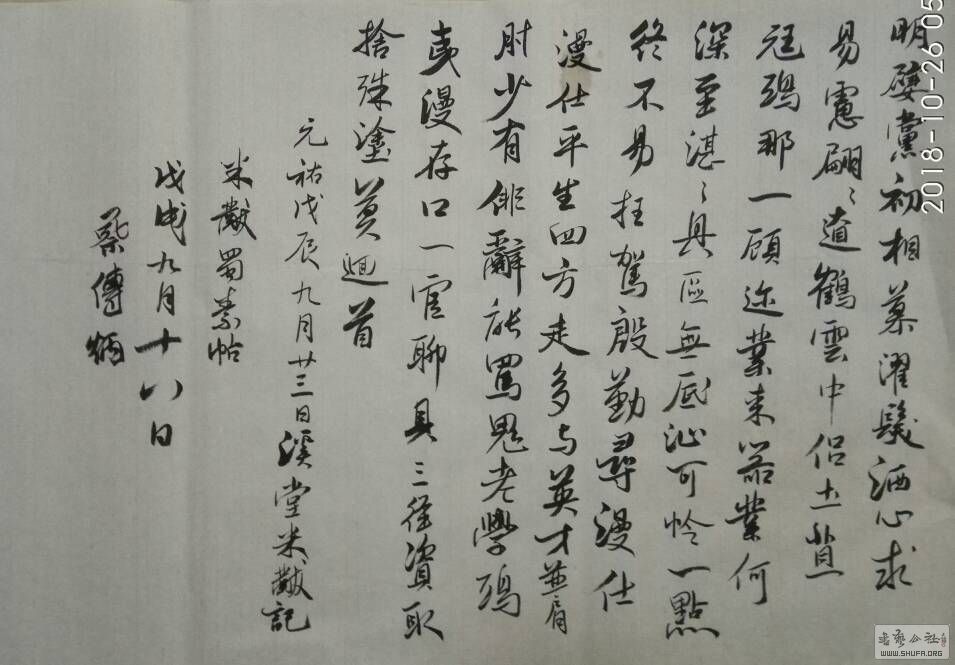 明嬖黨初相慕濯髮洒心求
易慮翩〻遼鶴雲中侣土苴
尪鴟那一顧迩業来器業何
深至湛〻具區無底沚可怜一點
終不易枉駕殷勤尋漫仕
漫仕平生四方走多与英才並肩
肘少有俳辭能罵鬼老學鴟
夷漫存口一官聊具三徑資取
捨殊塗莫迴首
元祐戊辰九月廿三日溪堂米黻記
米黻蜀素帖
戊戌九月十八日
蔡傳炳
2018-10-26 05
書藝公社
WWW.SHUFA.ORG